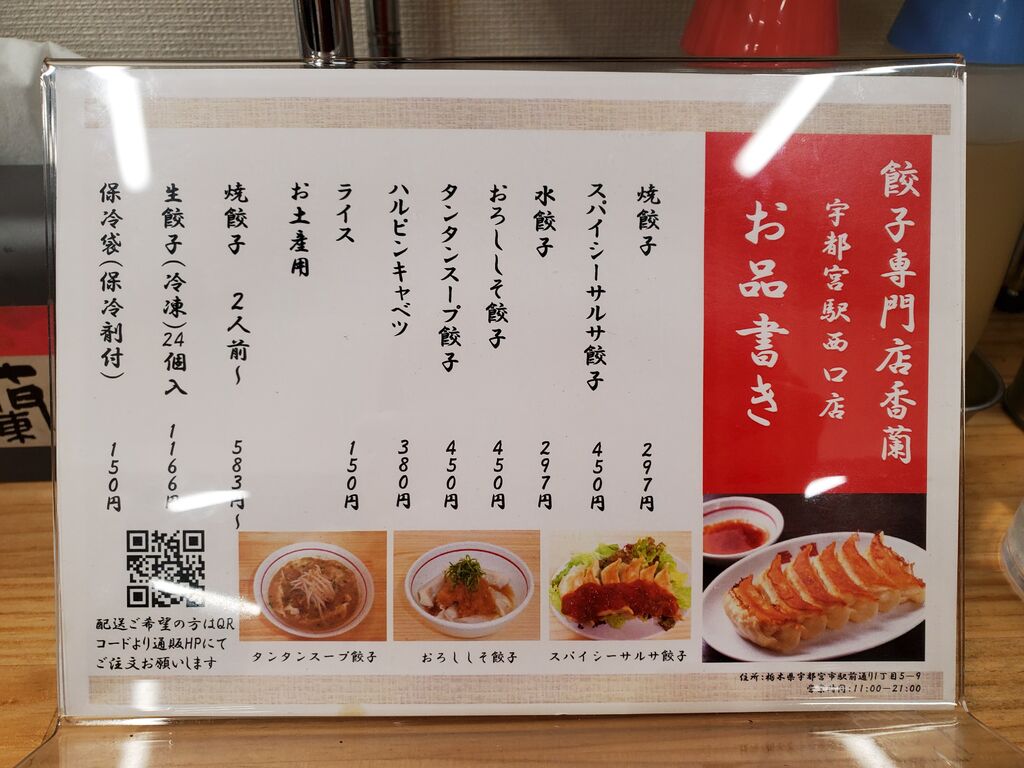 餃子専門店香蘭
宇都宮駅西口店
お品書き
焼餃子 297円
スパイシーサルサ餃子 450円
水餃子 297円
おろししそ餃子 450円
タンタンスープ餃子 450円
ハルピンキャベツ 380円
ライス 150円
お土産用
焼餃子 2人前~ 583円~
生餃子(冷凍)24個入 1166円
保冷袋(保冷剤付) 150円
配送ご希望の方はQR
コードより通販HPにて
ご注文お願いします
タンタンスープ餃子
おろししそ餃子
スパイシーサルサ餃子
住所:栃木県宇都宮市駅前通り1丁目5-9
営業時間:11:00-21:00